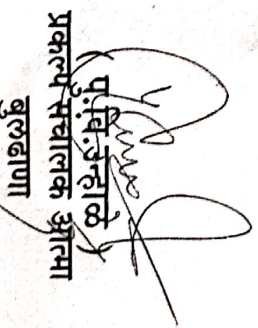 (पु.वि.उन्हाळे)
प्रकल्प संचालक आत्मा
बुलढाणा